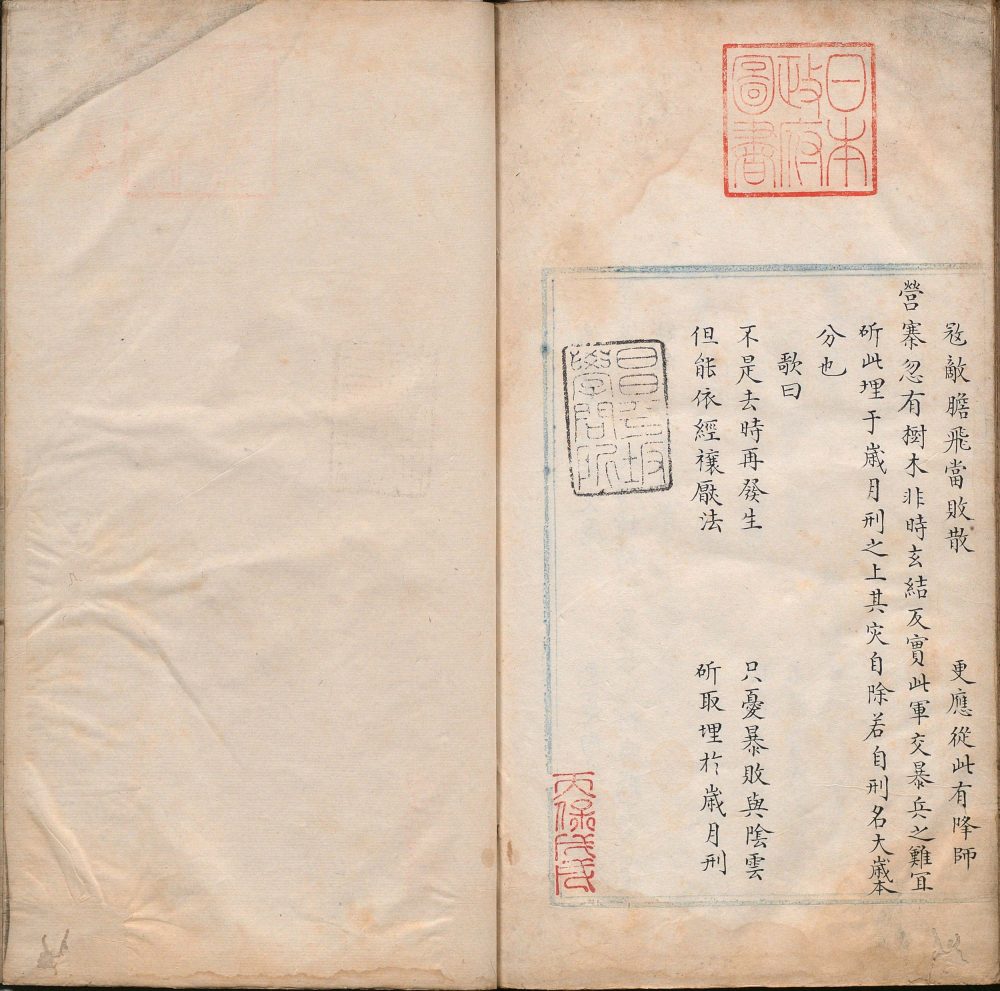 日本
政府
圖書
㓂敵膽飛當敗散　更應從此有降師
營寨忽有樹木非時玄結反實此軍交暴兵之難冝
斫此埋于歳月刑之上其灾自除若自刑名大歳本
分也
歌曰
不是去時再發生　只憂暴敗與陰雲
但能依經禳厭法　斫取埋於歳月刑
昌平坂
學問所
天保